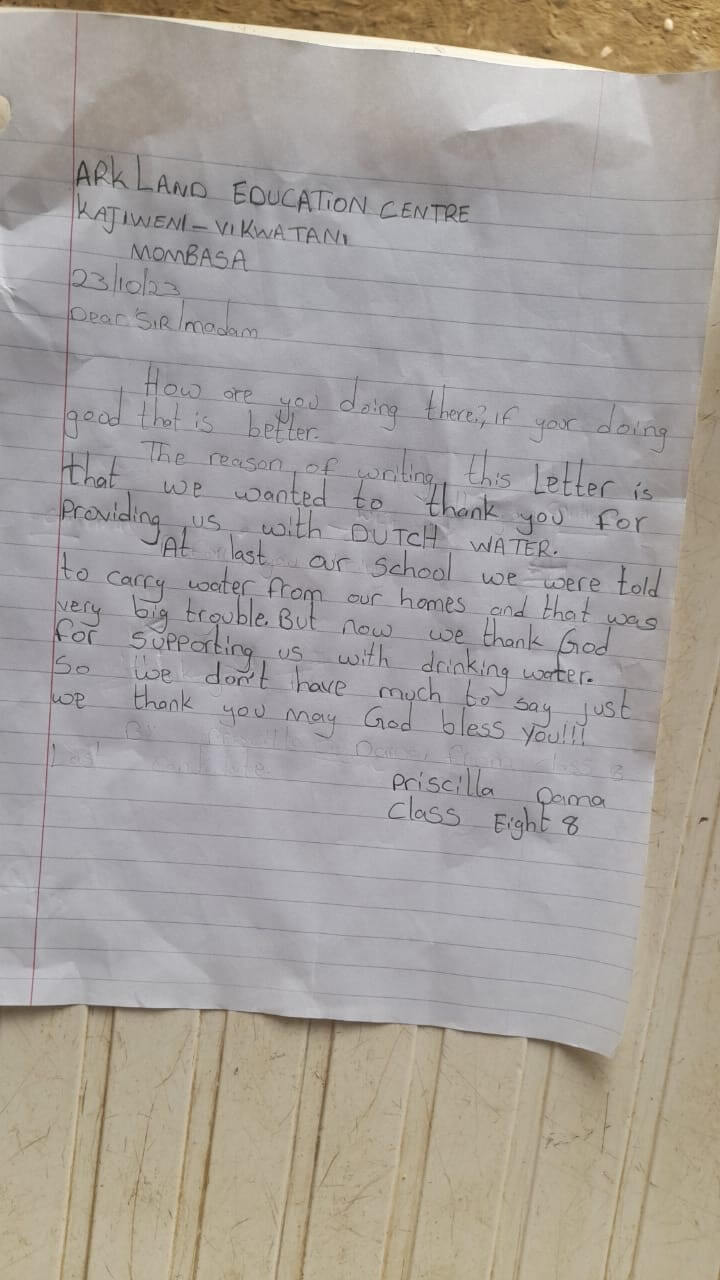 ARK LAND EDUCATION CENTRE
KAJIWENI - VIKWATANI
MOMBASA
23/10/23
Dear SIR/madam
How are you doing there?, if your doing
good that is better.
The reason of writing this Letter is
that we wanted to thank you for
providing us with DUTCH WATER.
At last our school we were told
to carry water from our homes and that was
very big trouble. But now we thank God
for supporting us with drinking water.
So we don't have much to say just
we thank you may God bless you!!!
Priscilla Dama
Class Eight 8